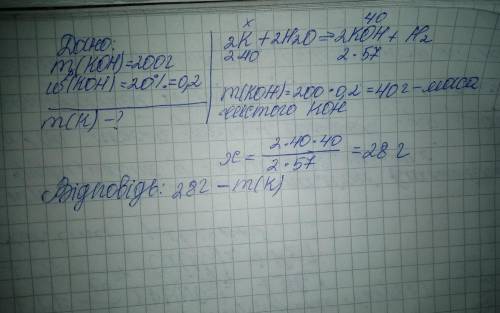 Дано:
m(KOH)=200г
ω(KOH)=20%=0,2
m(K)-?
x 40
2K+2H2O=2KOH+H2
2·40 2·57
m(KOH)=200·0,2=40г-маса
чистого KOH
x = 2·40·40 / 2·57 = 28 г
Відповідь: 28г-m(K)